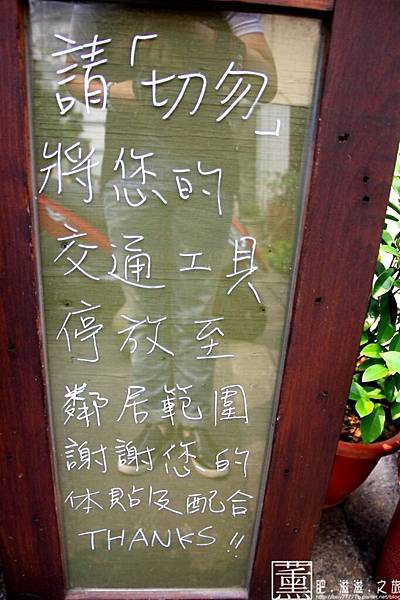 請「切勿」
將您的
交通工具
停放至
鄰居範圍
謝謝您的
体貼及配合
THANKS!!
薰
肥.滋滋.之旅